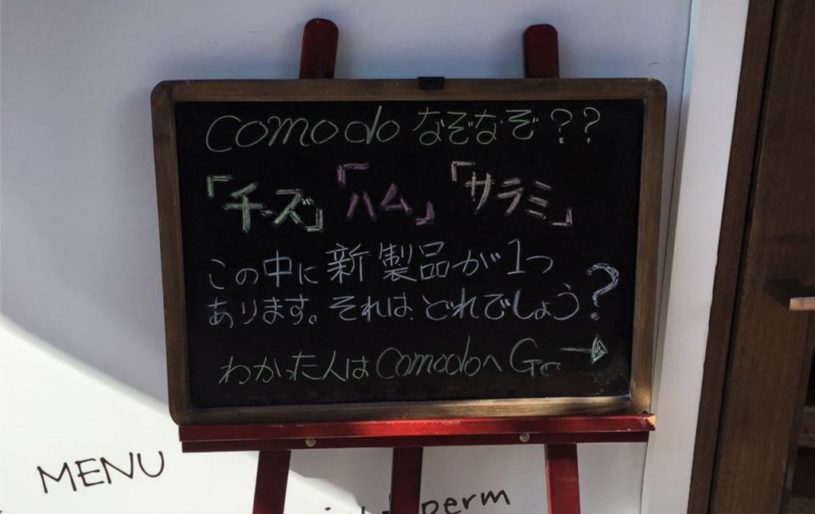 comodo なぞなぞ??
「チーズ」「ハム」「サラミ」
この中に新製品が1つ
あります。それは、どれでしょう?
わかった人はComodoへ Go→
MENU
perm